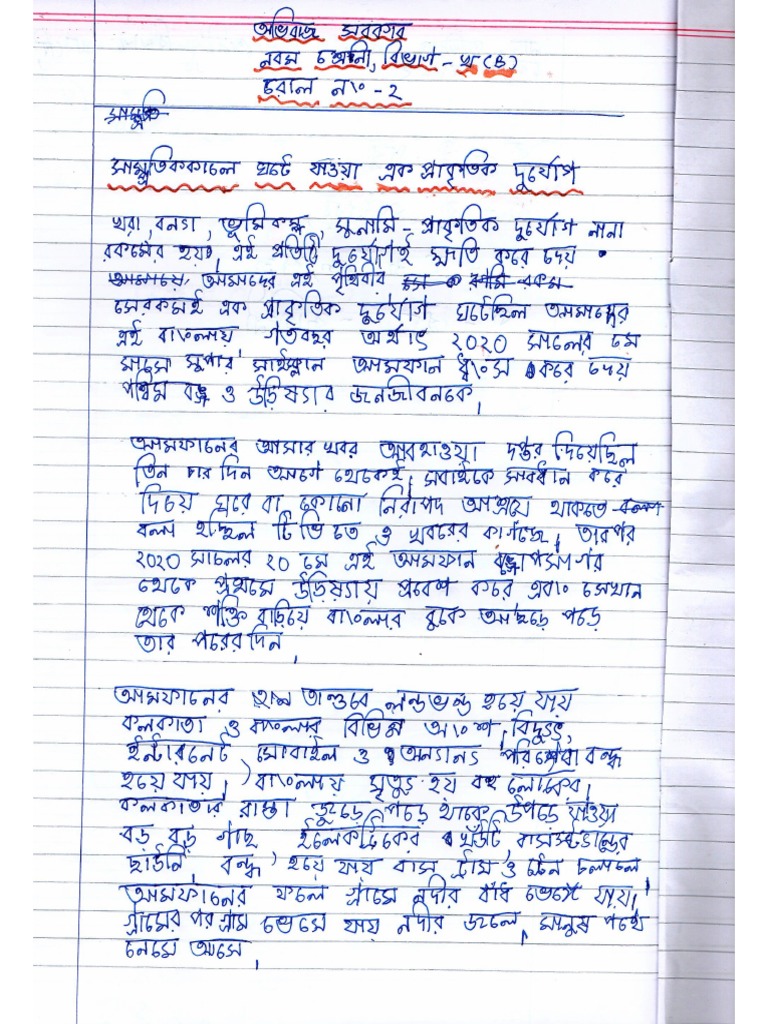 অভিরাজ সরকার
নবম শ্রেণী, বিভাগ - খ (B)
রোল নং - ২
সাম্প্রতিককালে ঘটে যাওয়া এক প্রাকৃতিক দুর্যোগ
খরা, বন্যা, ভূমিকম্প, সুনামি - প্রাকৃতিক দুর্যোগ নানা
রকমের হয়। এই প্রতিটি দুর্যোগই ক্ষতি করে দেয়
আমাদের এই পৃথিবীর
সেরকমই এক প্রাকৃতিক দুর্যোগ ঘটেছিল আমাদের
এই বাংলায় গতবছর অর্থাৎ ২০২০ সালের মে
মাসে সুপার সাইক্লোন আমফান ধ্বংস করে দেয়
পশ্চিম বঙ্গ ও উড়িষ্যার জনজীবনকে।
আমফানের আসার খবর আবহাওয়া দপ্তর দিয়েছিল
তিন চার দিন আগে থেকেই। সবাইকে সাবধান করে
দিয়ে ঘরে বা কোনো নিরাপদ আশ্রয়ে থাকতে
বলা হচ্ছিল টিভি তে ও খবরের কাগজে। তারপর
২০২০ সালের ২০ মে এই আমফান বঙ্গোপসাগর
থেকে প্রথমে উড়িষ্যায় প্রবেশ করে এবং সেখান
থেকে শক্তি বাড়িয়ে বাংলার বুকে আছড়ে পড়ে
তার পরের দিন।
আমফানের তাণ্ডবে লন্ডভন্ড হয়ে যায়
কলকাতা ও বাংলার বিভিন্ন অংশ। বিদ্যুৎ,
ইন্টারনেট, মোবাইল ও অন্যান্য পরিষেবা বন্ধ
হয়ে যায়। বাংলায় মৃত্যু হয় বহু লোকের।
কলকাতার রাস্তা জুড়ে পড়ে থাকে উপড়ে যাওয়া
বড় বড় গাছ, ইলেকট্রিকের খুঁটি, বাসস্ট্যান্ডের
ছাউনি। বন্ধ হয়ে যায় বাস ট্রাম ও ট্রেন চলাচল
আমফানের ফলে গ্রামে নদীর বাঁধ ভেঙ্গে যায়।
গ্রামের পর গ্রাম ভেসে যায় নদীর জলে। মানুষ পথে
নেমে আসে।